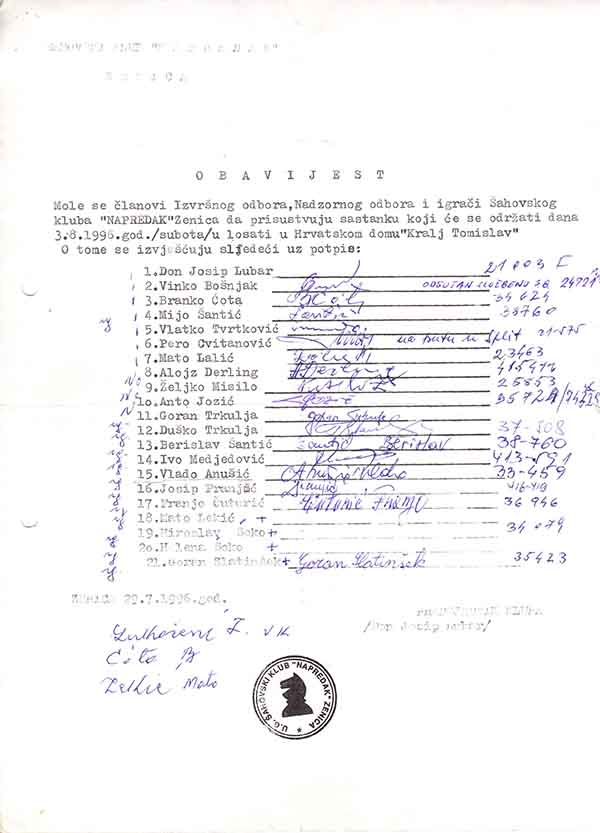 ŠAHOVSKI KLUB "NAPREDAK"
ZENICA
O B A V I J E S T
Mole se članovi Izvršnog odbora,Nadzornog odbora i igrači Šahovskog
kluba "NAPREDAK"Zenica da prisustvuju sastanku koji će se održati dana
3.8.1996.god./subota/u 1osati u Hrvatskom domu"Kralj Tomislav"
O tome se izvješćuju sljedeći uz potpis:
1.Don Josip Lubar 21 003
2.Vinko Bošnjak ODSUTAN SLUŽBENO SB 24721
3.Branko Ćota 34 624
4.Mijo Šantić 38760
5.Vlatko Tvrtković 21-575
6.Pero Cvitanović na putu u Split
7.Mato Lalić 23463
8.Alojz Derling
9.Željko Misilo 25553
1o.Anto Jozić
11.Goran Trkulja
12.Duško Trkulja 37-508
13.Berislav Šantić Šantić Berislav 38-760
14.Ivo Medjedović 413-591
15.Vlado Anušić 33-459
16.Josip Franjić 416-419
17.Franjo Šuturić 36 946
18.Mato Lekić +
19.Miroslav Soko + 34 079
2o.Helena Soko +
21.Goran Slatinšek + Goran Slatinšek 35423
Zenica 29.7.1996.god.
PREDSJEDNIK KLUBA
/Don Josip Lubar/
Ćota B
Lekić Mato
U.G. ŠAHOVSKI KLUB "NAPREDAK" ZENICA